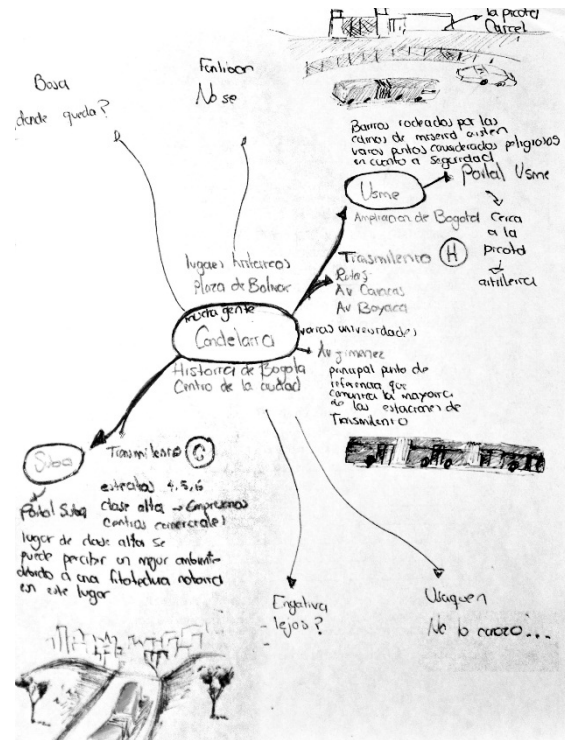 la picota
Carcel
Bosa
donde queda?
Fontibon
No se
Barrios rodeados por las
de miseria existen
varios puntos considerados peligrosos
en cuanto a seguridad
Usme
Portal Usme
Ampliacion de Bogota
cerca
a la
picota
artilleria
Transmilenio H
Rutas
Av Caracas
Av Boyaca
lugares historicos
plaza de Bolivar
mucha gente
Candelaria
varias universidades
Av Jimenez
principal punto de
referencia que
comunica la mayoria
de las estaciones de
Transmilenio
Historia de Bogota
Centro de la ciudad
Suba
Transmilenio C
Portal Suba
estratos 4,5,6
clase alta → Empresarios
centros comerciales
lugar de clase alta se
puede percibir un mejor ambiente
debido a una notoria
en este lugar
Engativa
lejos?
Usaquen
No lo conozco...